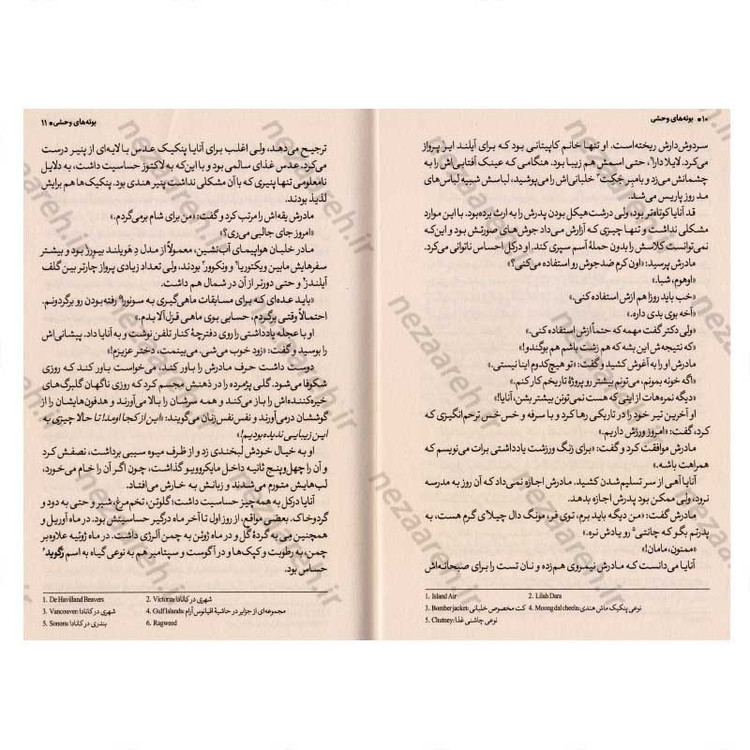 ۱۰ • بوته‌های وحشی
سردوش‌دارش ریخته‌است. او تنها خانم کاپیتانی بود که برای آیلند ایر پرواز
می‌کرد. لایلا دارا، حتی اسمش هم زیبا بود. هنگامی که عینک آفتابی‌اش را به
چشمانش می‌زد و بامبر جکِت خلبانی‌اش را می‌پوشید، لباسش شبیه لباس‌های
مد روز پاریس می‌شد.
قد آنایا کوتاه‌تر بود، ولی درشت‌هیکل بودن پدرش را به ارث برده‌بود. با این موارد
مشکلی نداشت و تنها چیزی که آزارش می‌داد جوش‌های صورتش بود و این‌که
نمی‌توانست کلاسش را بدون حملهٔ آسم سپری کند. او درکل احساس ناتوانی می‌کرد.
مادرش پرسید: «اون کرم ضدجوش رو استفاده می‌کنی؟»
«اوهوم، شبا.»
«خب باید روزا هم ازش استفاده کنی.»
«آخه بوی بدی داره.»
«ولی دکتر گفت مهمه که حتماً ازش استفاده کنی.»
«که نتیجه‌ش این بشه که هم زشت باشم هم بوگندو!»
مادرش او را به آغوش کشید و گفت: «تو هیچ‌کدوم اینا نیستی.»
«اگه خونه بمونم، می‌تونم بیشتر رو پروژهٔ تاریخم کار کنم.»
«دیگه نمره‌هات از اینی که هست نمی‌تونن بیشتر بشن، آنایا!»
او آخرین تیر خود را در تاریکی رها کرد و با سرفه و خس‌خس ترحم‌انگیزی که
کرد، گفت: «امروز ورزش داریم.»
مادرش موافقت کرد و گفت: «برای زنگ ورزشت یادداشتی برات می‌نویسم که
همراهت باشه.»
آنایا آهی از سر تسلیم شدن کشید. مادرش اجازه نمی‌داد که آن روز به مدرسه
نرود، ولی ممکن بود پدرش اجازه بدهد.
مادرش گفت: «من دیگه باید برم، توی فر، مونگ دال چیلای گرم هست، به
پدرتم بگو که چاتنی رو یادش نره.»
«ممنون، مامان!»
آنایا می‌دانست که مادرش نیمروی هم‌زده و نان تست را برای صبحانه‌اش
1. Island Air 2. Lilah Dara
3. Bomber jacket: کت مخصوص خلبانی 4. Moong dal cheela: نوعی پنکیک ماش هندی
5. Chutney: نوعی چاشنی غذا
بوته‌های وحشی • ۱۱
ترجیح می‌دهد، ولی اغلب برای آنایا پنکیک عدس با لایه‌ای از پنیر درست
می‌کرد. عدس غذای سالمی بود و با این‌که به لاکتوز حساسیت داشت، به دلایل
نامعلومی تنها پنیری که با آن مشکلی نداشت پنیر هندی بود. پنکیک‌ها هم برایش
لذیذ بودند.
مادرش یقه‌اش را مرتب کرد و گفت: «من برای شام برمی‌گردم.»
«امروز جای جالبی می‌ری؟»
مادر خلبان هواپیمای آب‌نشین، معمولاً از مدل دِ هَویلند بیورز بود و بیشتر
سفرهایش مابین ویکتوریا و ونکوور بودند، ولی تعداد زیادی پرواز چارتر بین گلف
آیلندز و حتی دورتر از آن در شمال هم داشت.
«باید عده‌ای که برای مسابقات ماهی‌گیری به سونورا رفته‌بودن رو برگردونم.
احتمالاً وقتی برگردم، حسابی بوی ماهی قزل‌آلا بدم.»
او با عجله یادداشتی را روی دفترچهٔ کنار تلفن نوشت و به آنایا داد. پیشانی‌اش
را بوسید و گفت: «زود خوب می‌شی. می‌بینمت، دختر عزیزم!»
دوست داشت حرف مادرش را باور کند، می‌خواست باور کند که روزی
شکوفا می‌شود. گلی پژمرده را در ذهنش مجسم کرد که روزی ناگهان گلبرگ‌های
خیره‌کننده‌اش را باز می‌کند و همه سرشان را بالا می‌آورند و هدفون‌هایشان را از
گوششان درمی‌آورند و نفس‌نفس‌زنان می‌گویند: «این از کجا اومد! تا حالا چیزی به
این زیبایی ندیده‌بودیم!»
او به خیال خودش لبخندی زد و از ظرف میوه سیبی برداشت، نصفش کرد
و آن را چهل‌وپنج ثانیه داخل مایکروویو گذاشت، چون اگر آن را خام می‌خورد،
لب‌هایش متورم می‌شدند و زبانش به خارش می‌افتاد.
آنایا درکل به همه چیز حساسیت داشت؛ گلوتن، تخم‌مرغ، شیر و حتی به دود و
گردوخاک، بعضی مواقع، از روز اول تا آخر ماه درگیر حساسیتش بود. در ماه آوریل و
همچنین می به گردهٔ گل و در ماه ژوئن به چمن آلرژی داشت. در ماه ژوئیه علاوه بر
چمن، به رطوبت و کپک‌ها و در آگوست و سپتامبر هم به نوعی گیاه به اسم رَگوید
حساس بود.
1. De Havilland Beavers 2. Victoria: شهری در کانادا
3. Vancouver: شهری در کانادا 4. Gulf Islands: مجموعه‌ای از جزایر در حاشیهٔ اقیانوس آرام
5. Sonora: بندری در کانادا 6. Ragweed
nezaareh.ir